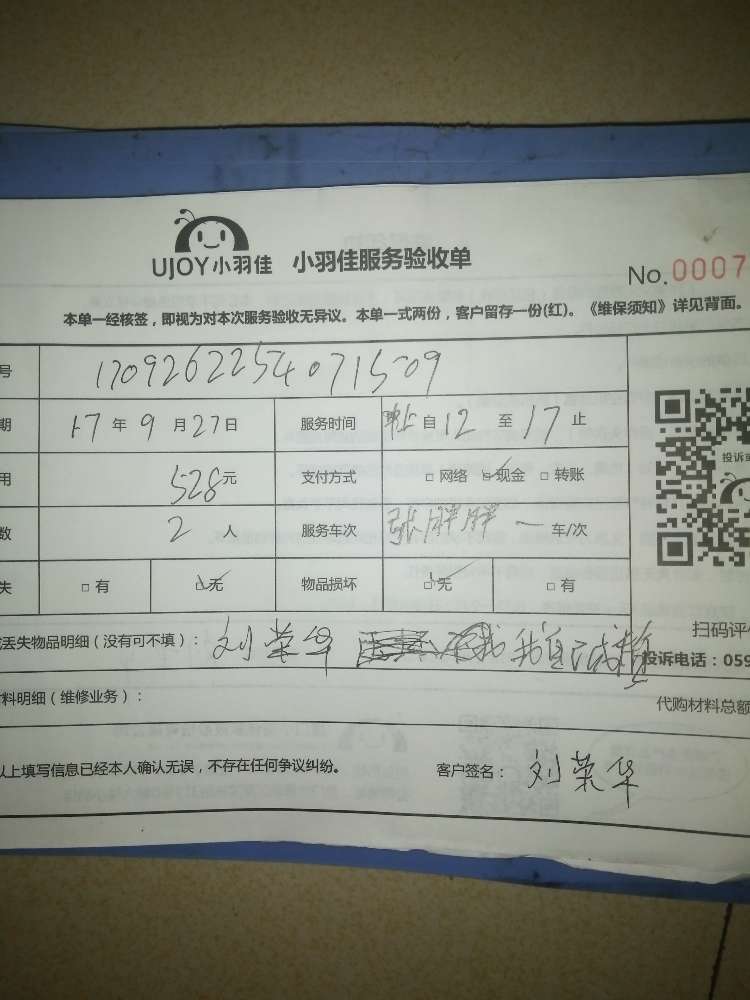 UJOY小羽佳 小羽佳服务验收单
No.0007
本单一经核签，即视为对本次服务验收无异议。本单一式两份，客户留存一份(红)。《维保须知》详见背面。
号 17092622540715509
期 17年9月27日 服务时间 自12至17止
用 528元 支付方式 □网络 □现金 □转账
投诉
数 2人 服务车次 张胖胖 一 车/次
失 □有 □无 物品损坏 □无 □有
扫码评
丢失物品明细（没有可不填）： 刘荣华 我自己
投诉电话：059
料明细（维修业务）：
代购材料总额
以上填写信息已经本人确认无误，不存在任何争议纠纷。 客户签名： 刘荣华